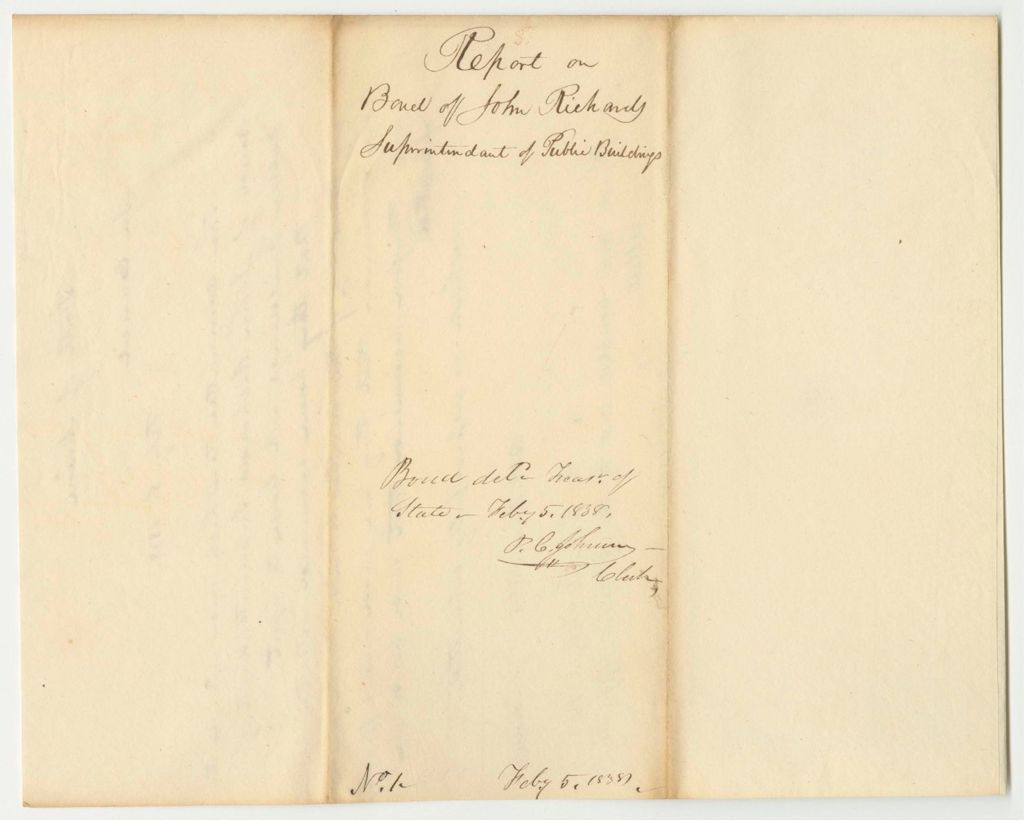 Report on
Bond of John Richards
Superintendant of Public Buildings
Bond del'd Treasr. of
State - Feby 5. 1838.
P. C. Johnson
Clerk
No. 1.
Feby 5. 1838.